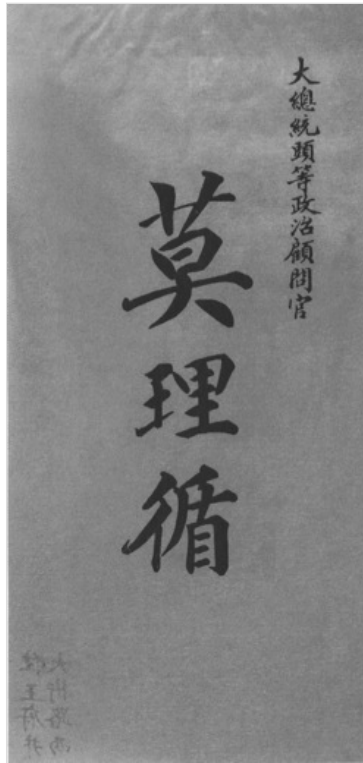 大總統頭等政治顧問官
莫理循